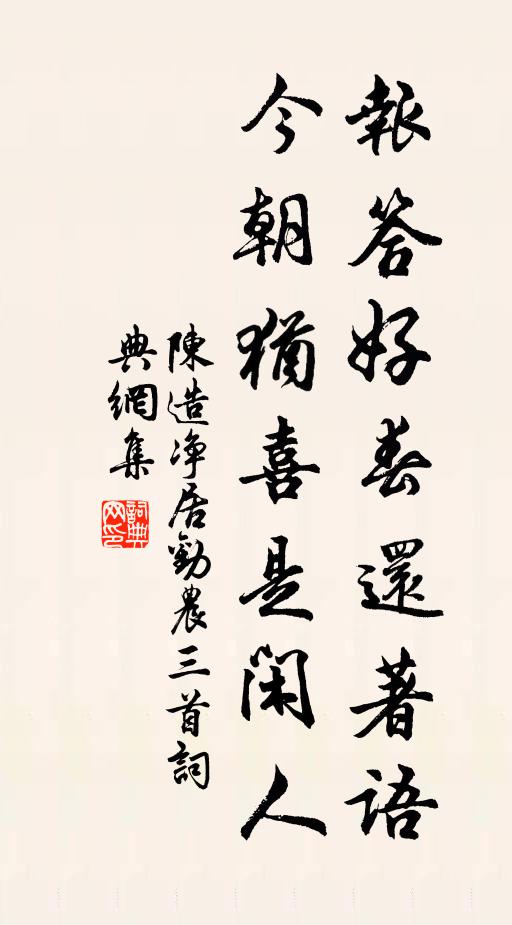 報答好春還著語
今朝猶喜是閑人
陳造净居勸農三首詞
典網集
詞典網印